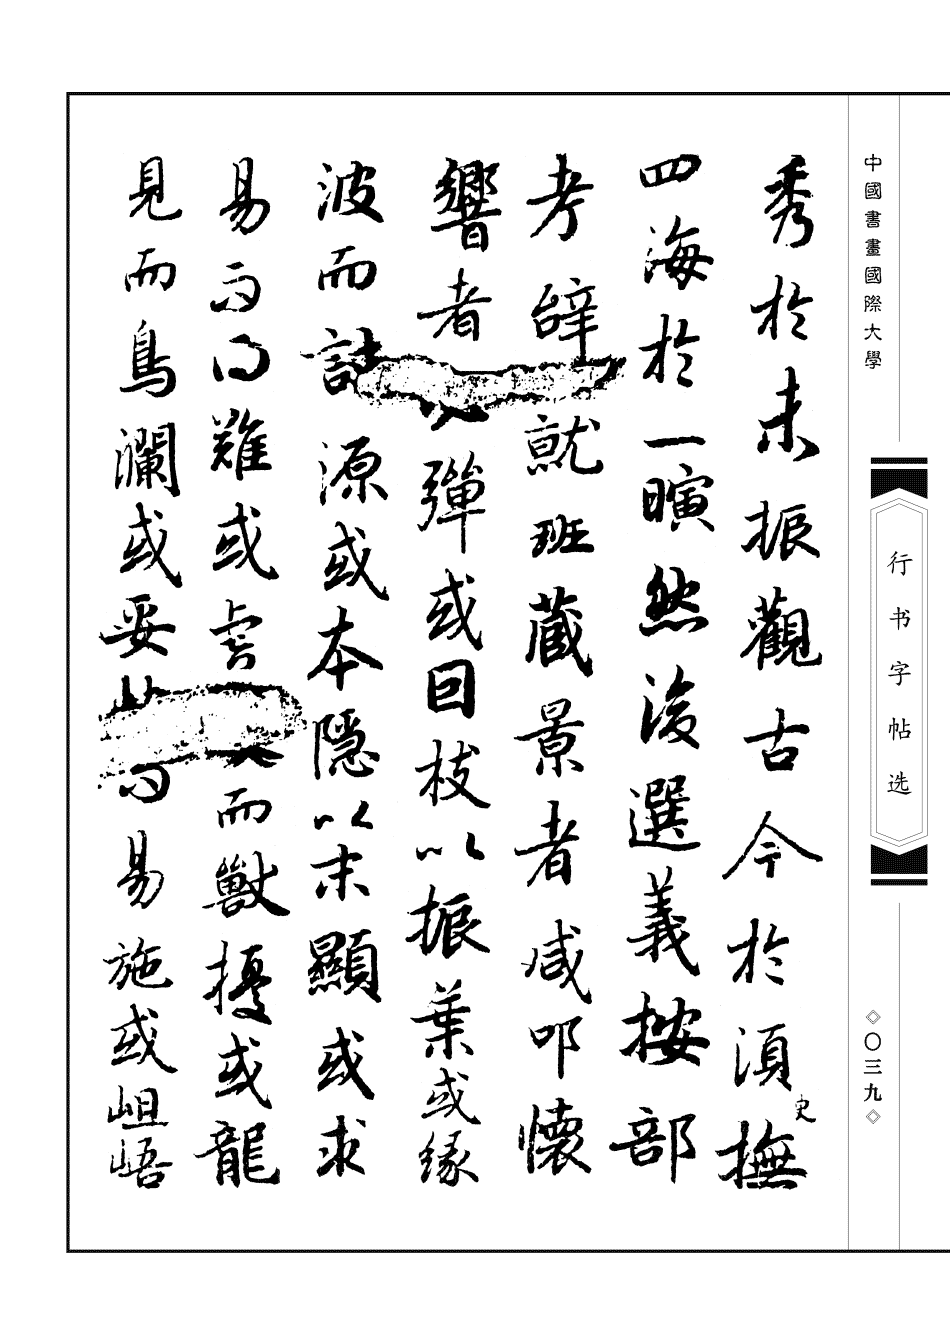 中國書畫國際大學
行书字帖选
◇〇三九◇
秀於未振觀古今於須臾撫
四海於一瞚然後選義按部
考辭就班藏景者咸叩懷
響者彈或因枝以振葉或緣
波而討源或本隱以末顯或求
易而得難或虎而獸擾或龍
見而鳥瀾或妥而易施或岨峿